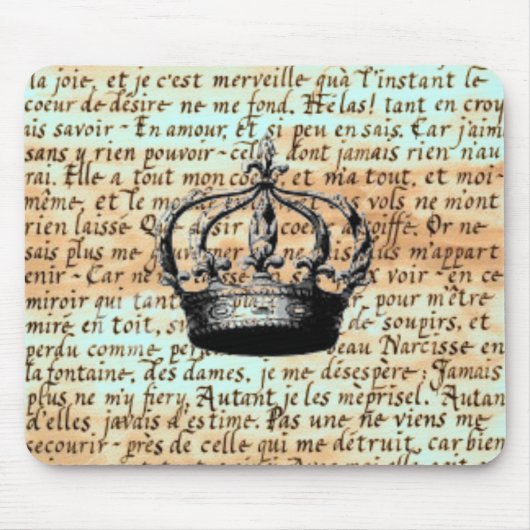 la joie, et je c'est merveille quà l'instant le
coeur de désire ne me fond. Hélas! tant en croy
ais savoir - En amour, et si peu en sais. Car j'aim
sans y rien pouvoir - celle dont jamais rien n'au
rai. Elle a tout mon co et m'a tout, et moi-
même, et le mo et vols ne m'ont
rien laissé Que désir coeur assoiffé. Or ne
sais plus me gouverner ne suis plus m'appart
enir - Car ne laissé en s voir - en ce
miroir qui tant plai r, pour m'être
miré en toit, su de soupirs, et
perdu comme per beau Narcisse en
la fontaine, des dames, je me désespère; Jamais
plus ne m'y fiery, Autant je les méprisel. Autan
d'elles javais d'estime. Pas une ne viens me
secourir - près de celle qui me détruit, car bien